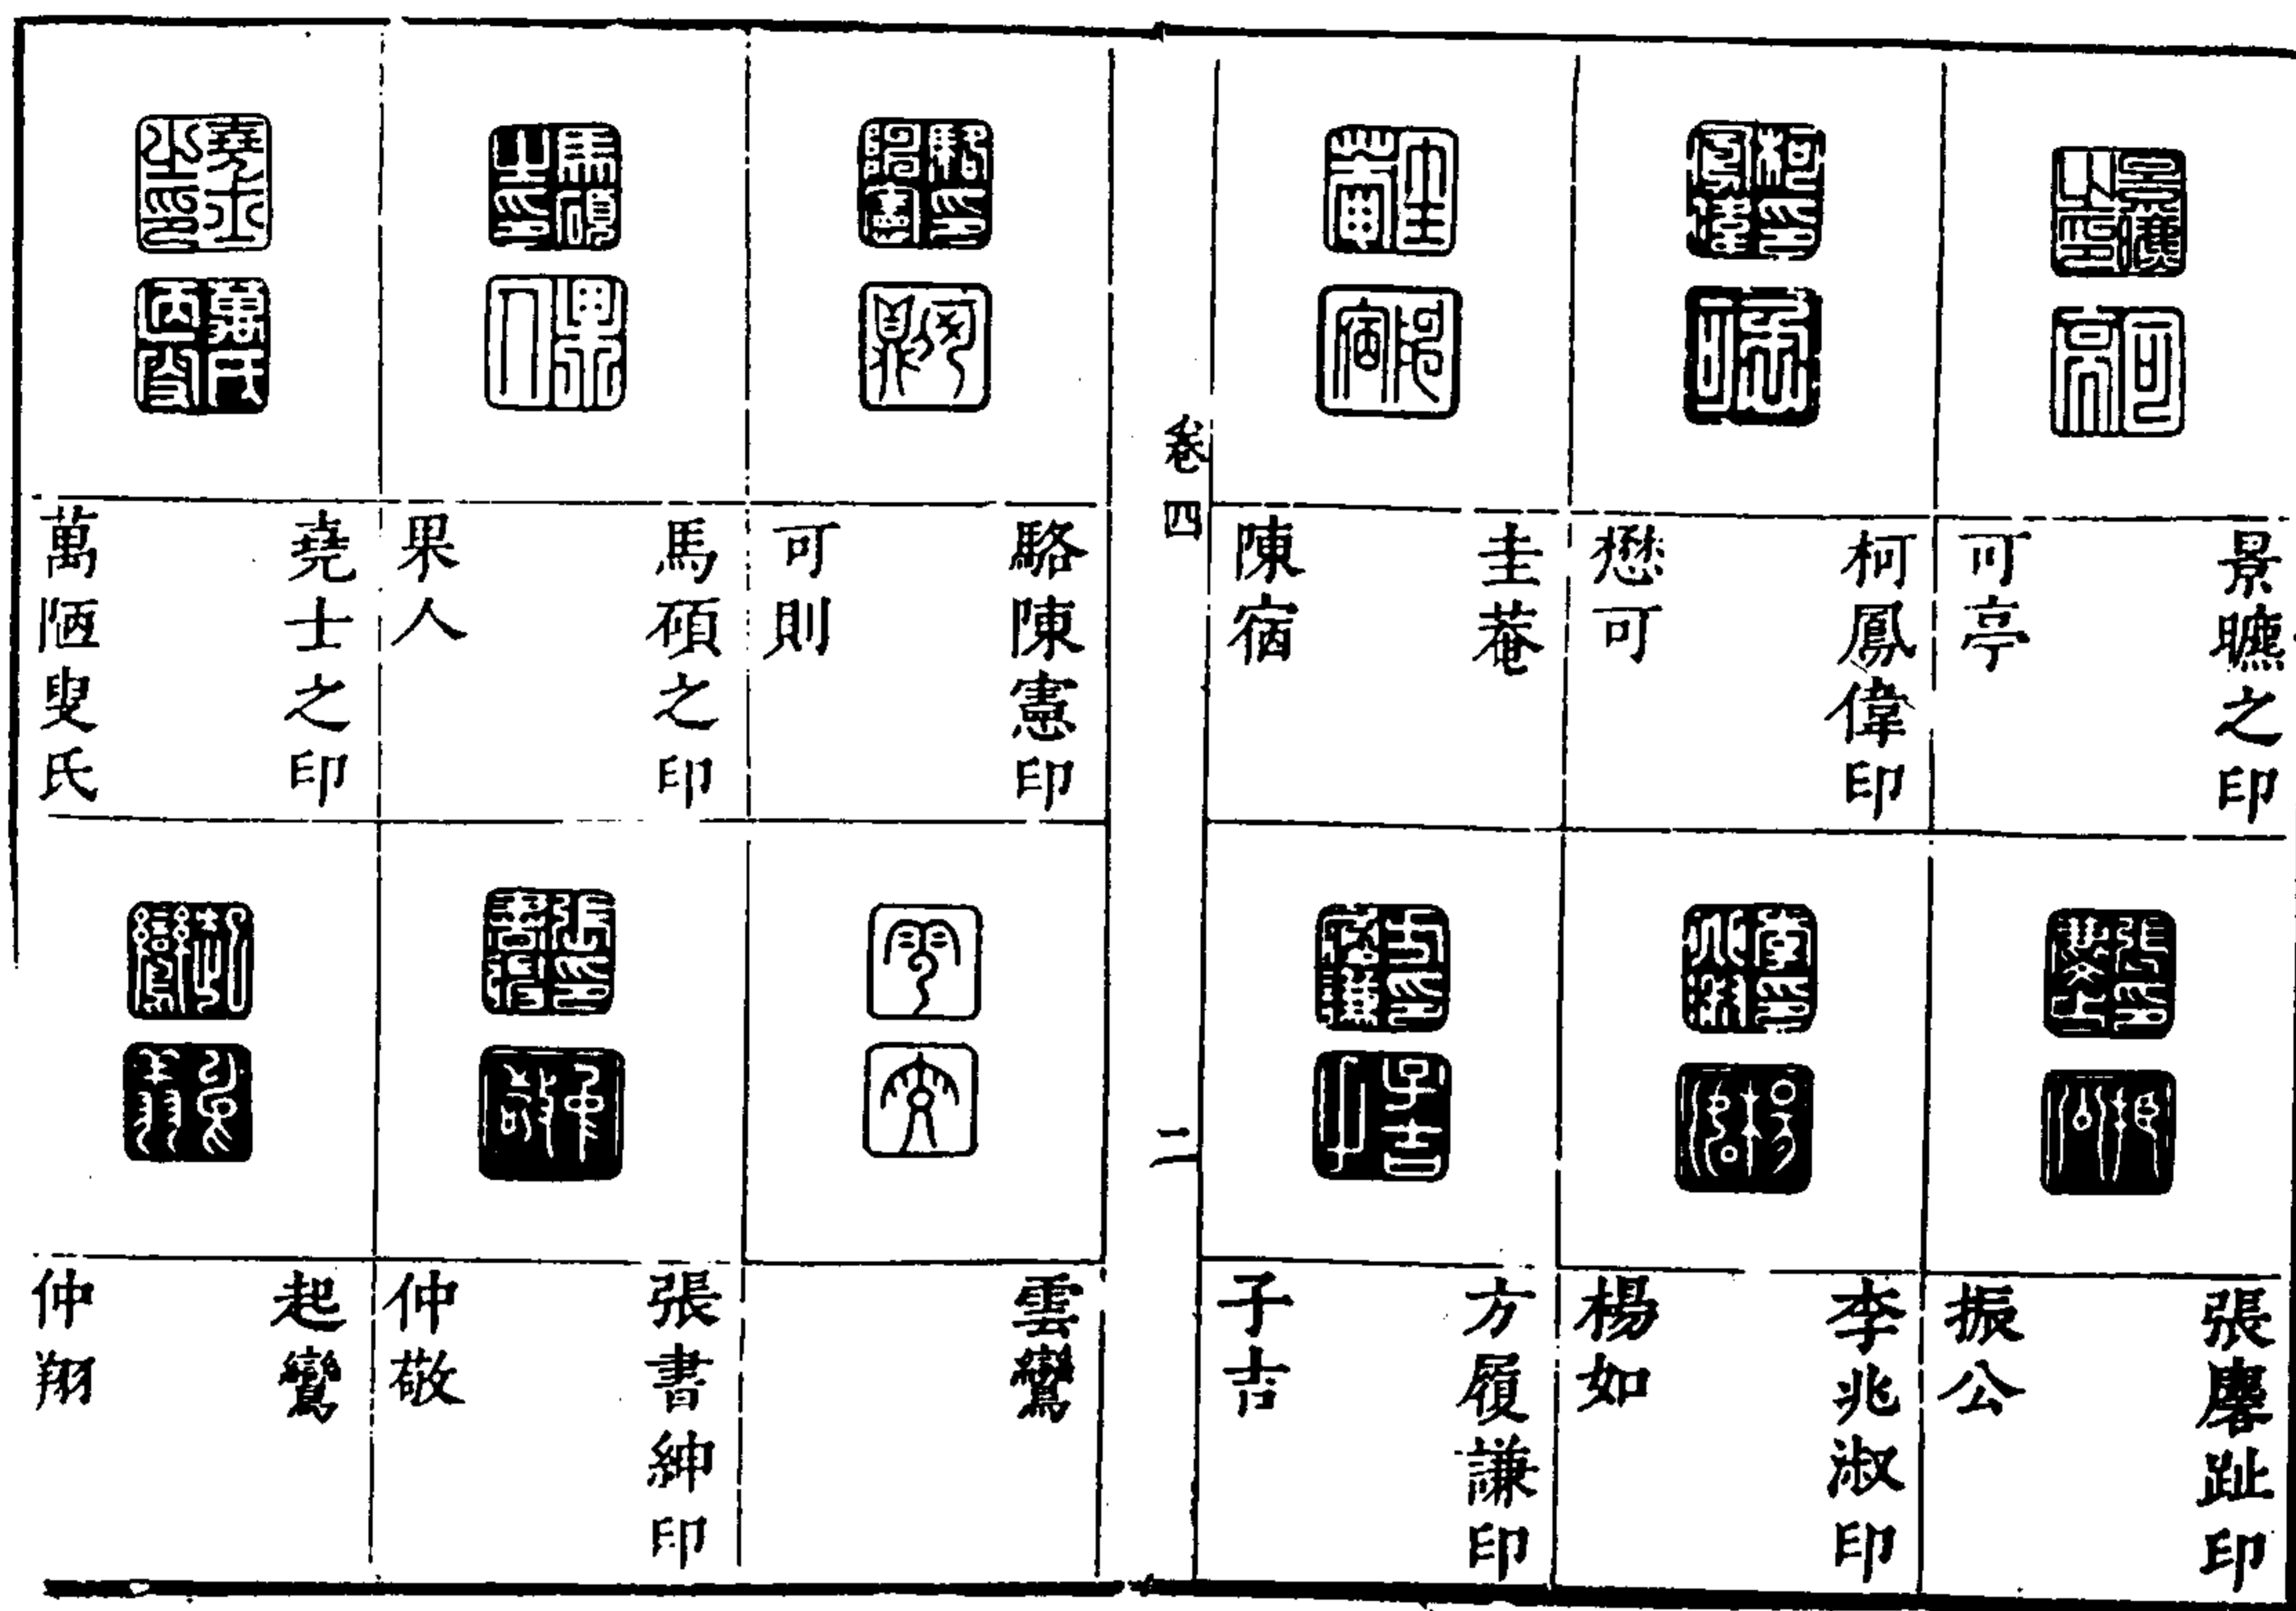 景曣之印
可亭
柯鳳偉印
懋可
圭菴
陳宿
張麐趾印
振公
李兆淑印
楊如
方履謙印
子吉
卷四
二
駱陳憲印
可則
馬碩之印
果人
堯士之印
萬陋叟氏
雲鸞
張書紳印
仲敬
起鸞
仲翔